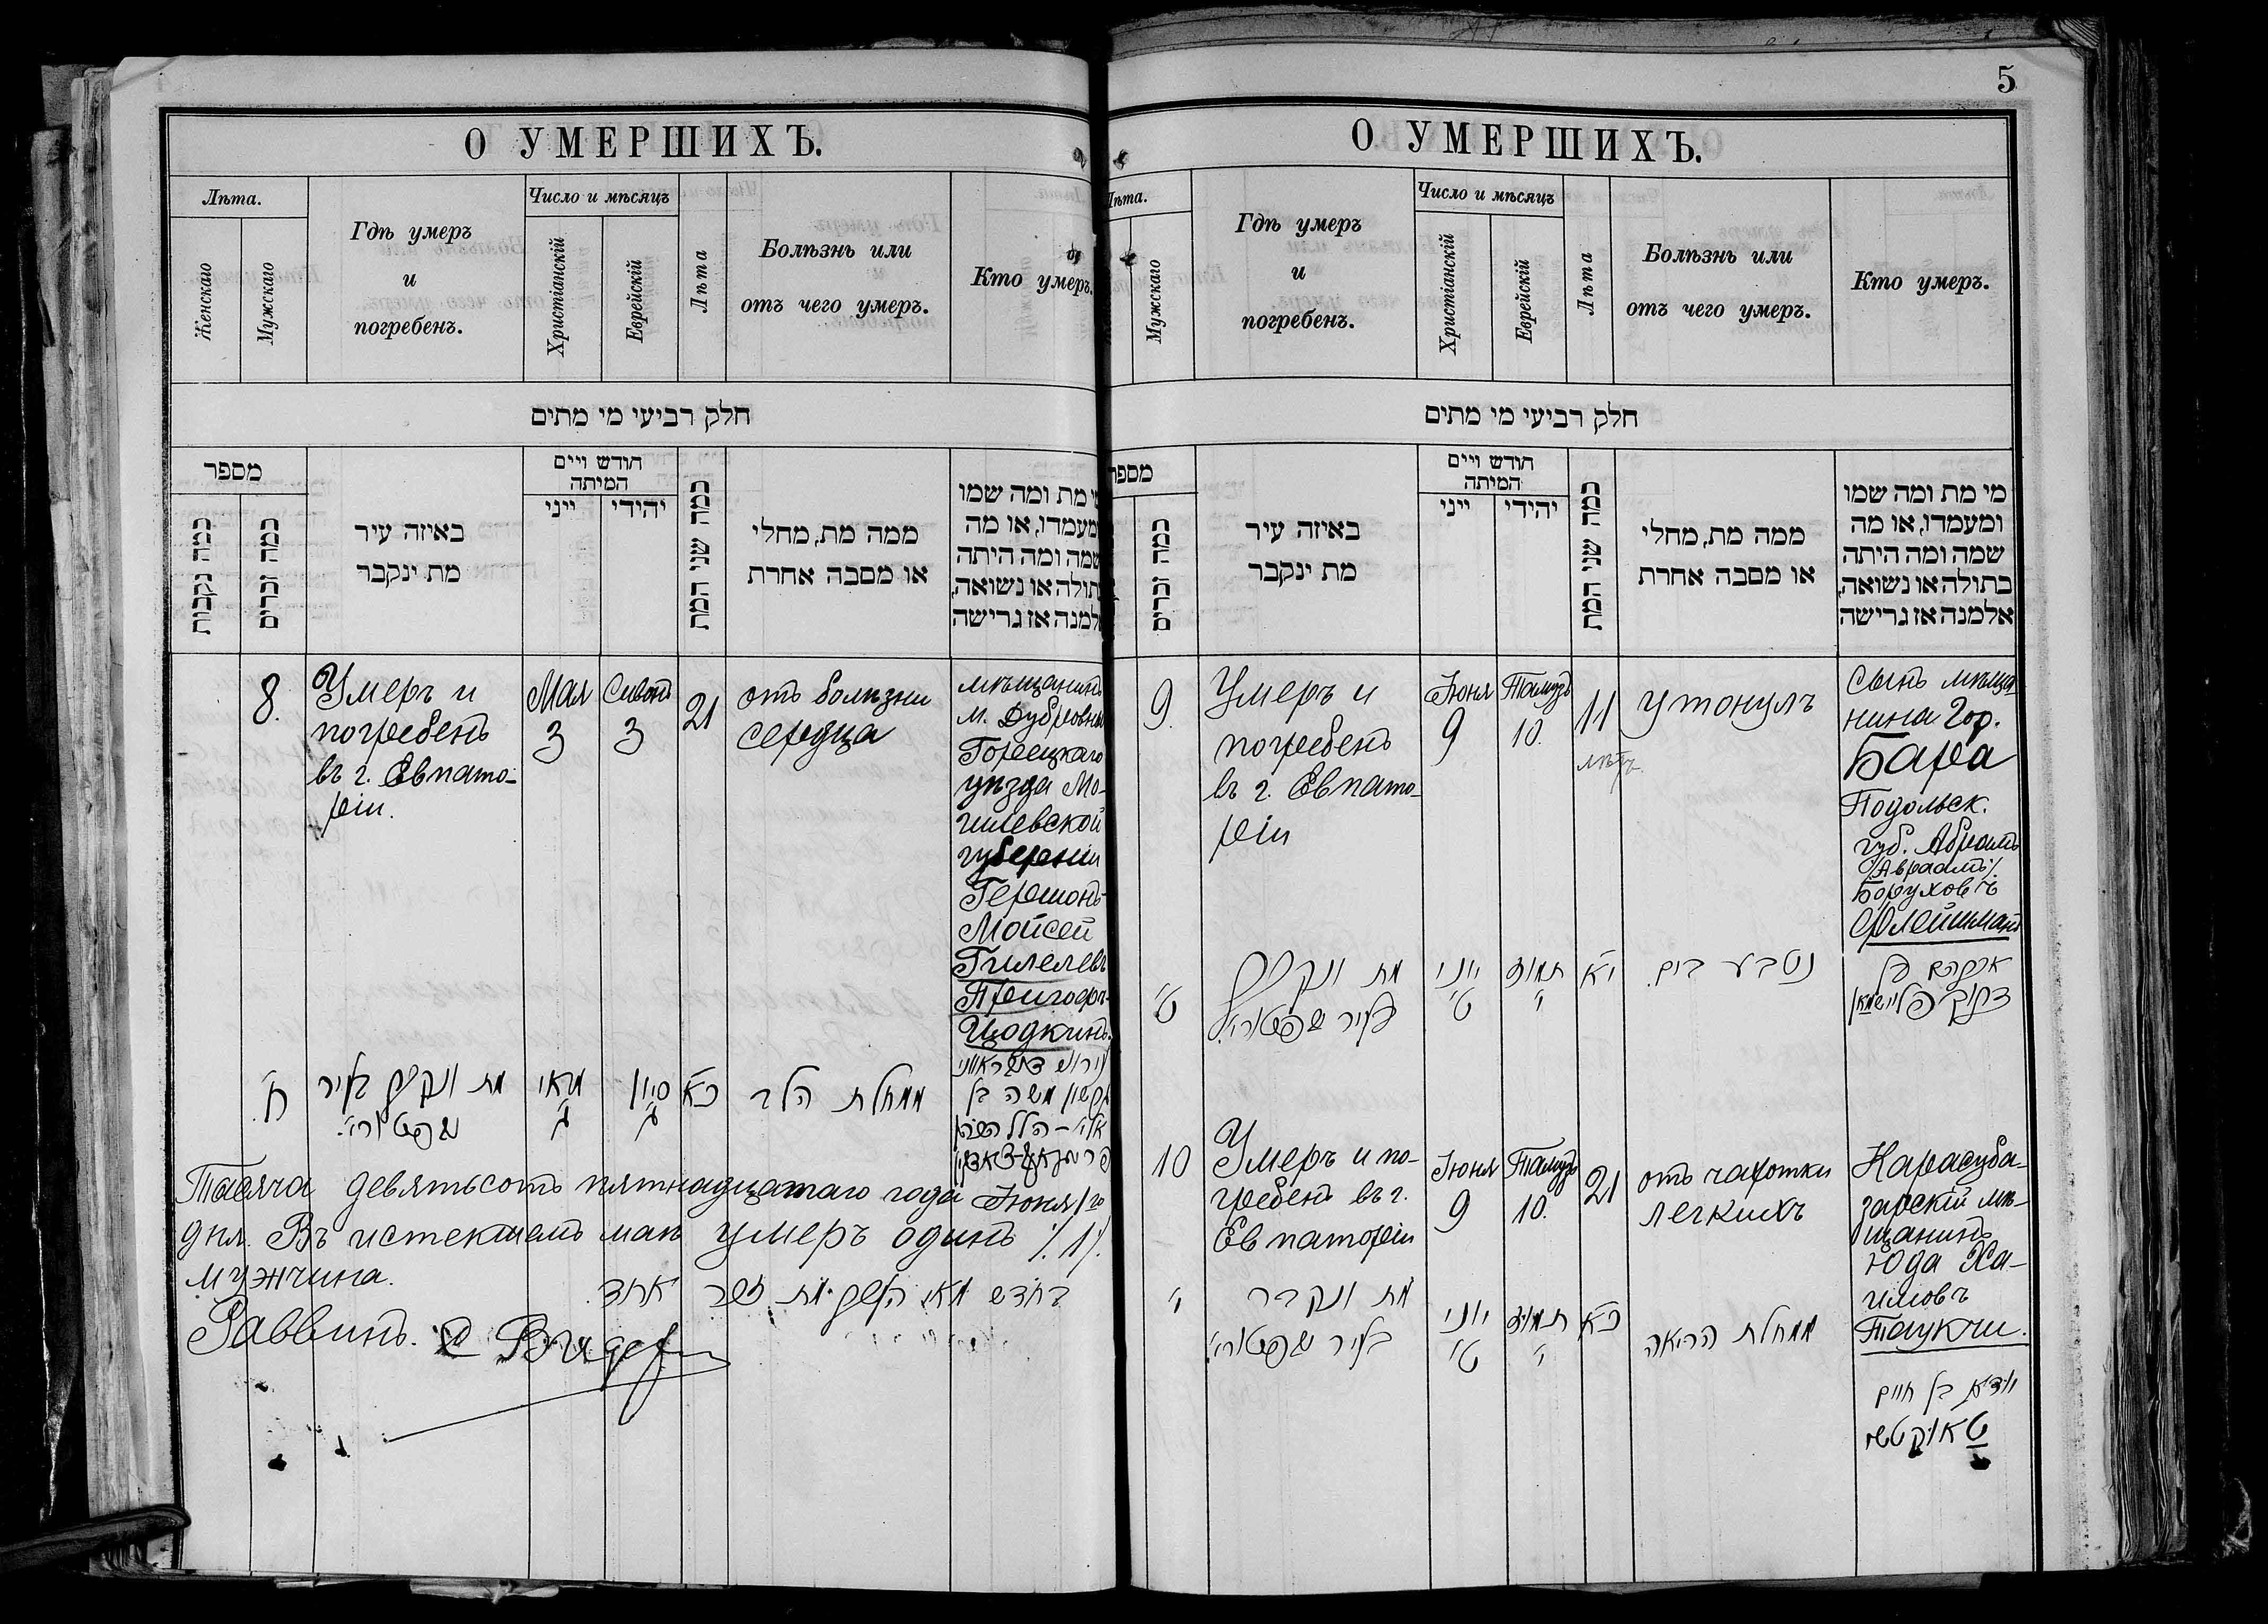 О УМЕРШИХЪ.
Лѣта.
Женскаго
Мужскаго
Гдѣ умеръ
и
погребенъ.
Число и мѣсяцъ
Христіанскій
Еврейскій
Лѣта
Болѣзнь или
отъ чего умеръ.
Кто умеръ.
חלק רביעי מי מתים
מספר
כמה נקבות
כמה זכרים
באיזה עיר
מת ינקבר
חודש ויים
המיתה
ייני
יהידי
כמה שני המת
ממה מת, מחלי
או מסבה אחרת
מי מת ומה שמו
ומעמדו, או מה
שמה ומה היתה
בתולה או נשואה,
אלמנה אז גרישה
8.
Умеръ и
погребенъ
въ г. Евпато-
ріи.
Мая
3
Сиванъ
3
21
отъ болѣзни
сердца
мѣщанинъ
м. Дубровны
Горецкаго
уѣзда Мо-
гилевской
губерніи
Гершонъ-
Мойсей
Гилелевъ
Пригоръ-
Цодкинъ.
ח׳.
מת ונקבר בעיר
מאי
ג׳
סיון
ג׳
כ״א
ממחלת הלב
משה בן
Тысяча девятьсотъ пятнадцатаго года Іюня 1го
дня. Въ истекшемъ маѣ умеръ одинъ /1/.
мужчина.
בחדש מאי העבר מת זכר אחד.
Раввинъ.
5
О УМЕРШИХЪ.
Лѣта.
Мужскаго
Гдѣ умеръ
и
погребенъ.
Число и мѣсяцъ
Христіанскій
Еврейскій
Лѣта
Болѣзнь или
отъ чего умеръ.
Кто умеръ.
חלק רביעי מי מתים
מספר
כמה זכרים
באיזה עיר
מת ינקבר
חודש ויים
המיתה
ייני
יהידי
כמה שני המת
ממה מת, מחלי
או מסבה אחרת
מי מת ומה שמו
ומעמדו, או מה
שמה ומה היתה
בתולה או נשואה,
אלמנה אז גרישה
9.
Умеръ и
погребенъ
въ г. Евпато-
ріи
Іюня
9
Тамузъ
10.
11
лѣтъ.
утонулъ
сынъ мѣща-
нина гор.
Бара
Подольск.
губ. Абрамъ
/Авраамъ/.
Боруховъ
Флейшманъ
ט׳
מת ונקבר
בעיר
יוני
ט׳
תמוז
י׳
י״א
נטבע בים.
אברהם בן
ברוך פליישמאן
10
Умеръ и по-
гребенъ въ г.
Евпаторіи
Іюня
9
Тамузъ
10.
21
отъ чахотки
легкихъ
Карасуба-
зарскій мѣ-
щанинъ
Юда Ха-
имовъ
Таукчи.
י׳
מת ונקבר
בעיר
יוני
ט׳
תמוז
י׳
כ״א
ממחלת הריאה
יודא בן חיים
טאוקטשי